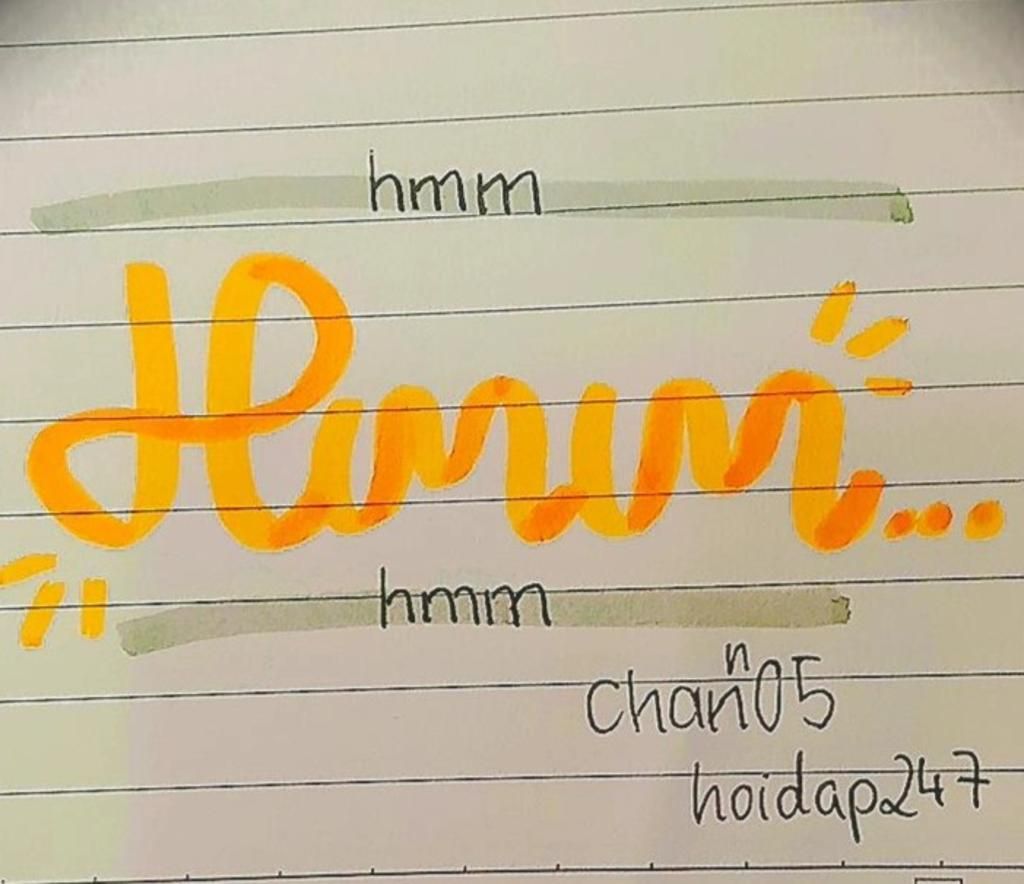 hmm
Hmm...
hmm
chann05
hoidap247